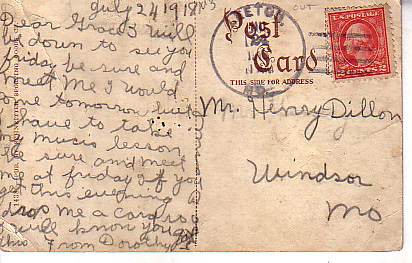 July 24 1918
Dear Grace I will
be down to see you
friday be sure and
meet me I would
come tomorrow but
have to take
my music lesson
be sure and meet
me at friday if you
get this evening
drop me a card so
I will know you got
this From Dorothy
Post
Card
THIS SIDE FOR ADDRESS
Mr. Henry Dillon
Windsor
Mo
U.S. POSTAGE
2 CENTS 2